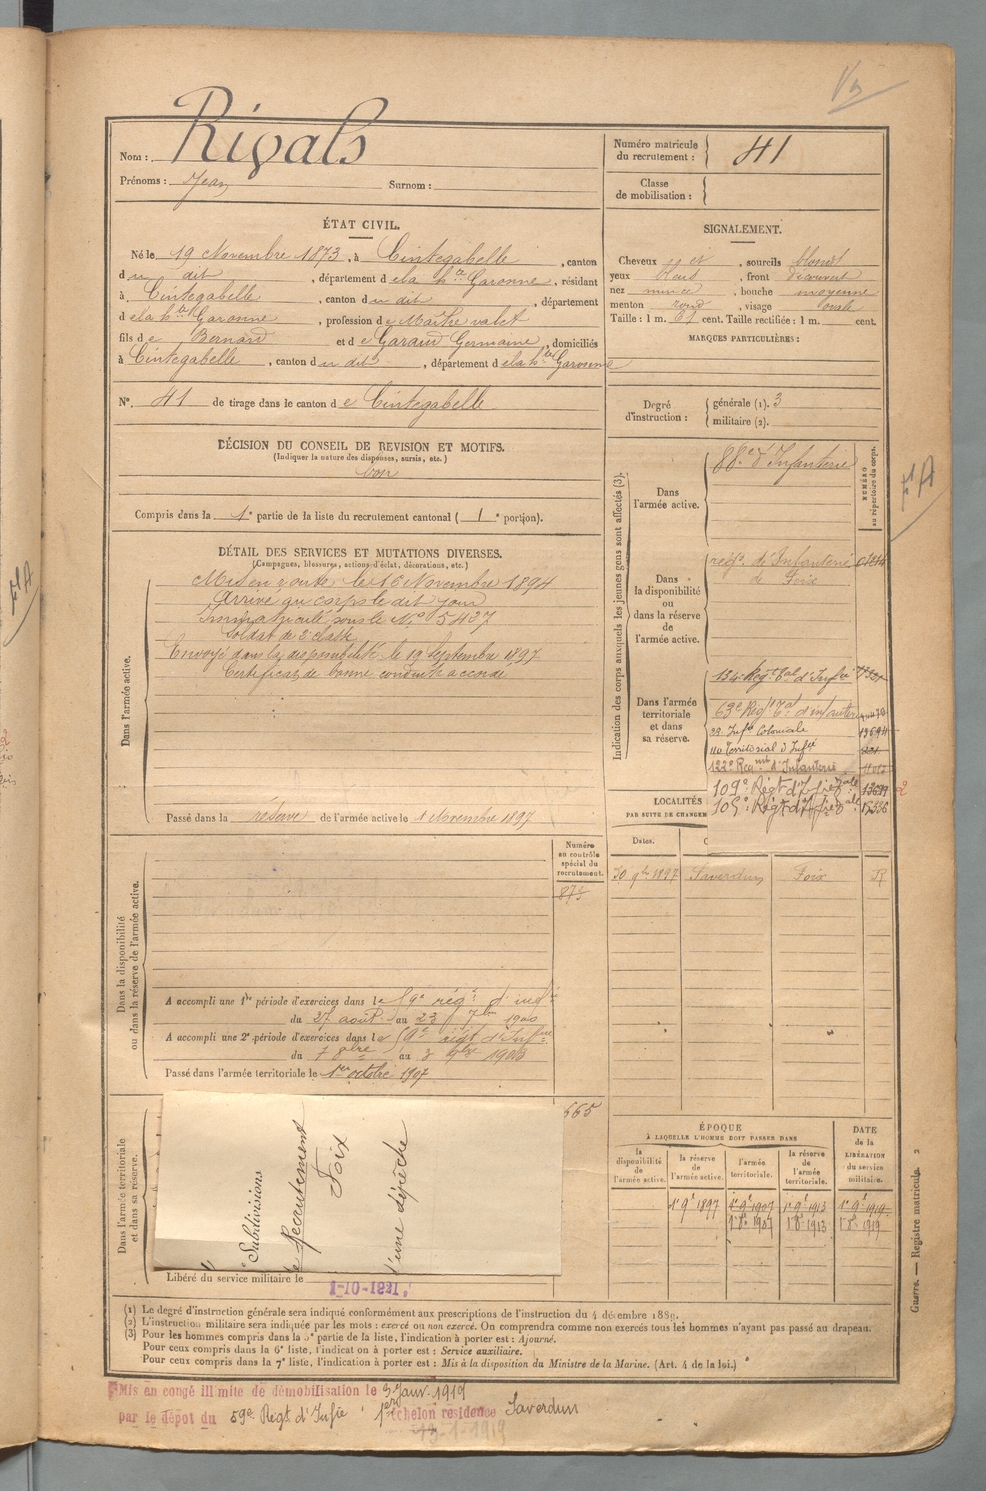 Nom : Rivals
Prénoms : Jean Surnom :
Numéro matricule du recrutement : 41
Classe de mobilisation :
ÉTAT CIVIL.
Né le 19 Novembre 1873, à Cintegabelle, canton
du dit, département de la hte Garonne, résidant
à Cintegabelle, canton du dit, département
de la hte Garonne, profession de Maître valet
fils de Bernard et de Garaud Germaine, domiciliés
à Cintegabelle, canton du dit, département de la hte Garonne
N° 41 de tirage dans le canton de Cintegabelle
SIGNALEMENT.
Cheveux et, sourcils blonds
yeux bleus, front découvert
nez mince, bouche moyenne
menton rond, visage ovale
Taille : 1 m. 61 cent. Taille rectifiée : 1 m. cent.
MARQUES PARTICULIÈRES :
Degré d'instruction : générale (1). 3
militaire (2).
DÉCISION DU CONSEIL DE REVISION ET MOTIFS.
(Indiquer la nature des dispenses, sursis, etc.)
bon
Compris dans la 1e partie de la liste du recrutement cantonal (1e portion).
DÉTAIL DES SERVICES ET MUTATIONS DIVERSES.
(Campagnes, blessures, actions d'éclat, décorations, etc.)
Dans l'armée active.
Mis en route le 16 Novembre 1894
Arrivé au corps le dit jour
Immatriculé sous le N° 5437
Soldat de 2e classe
Envoyé dans la disponibilité le 19 Septembre 1897
Certificat de bonne conduite accordé
Passé dans la réserve de l'armée active le 1 Novembre 1897
Indication des corps auxquels les jeunes gens sont affectés (3).
NUMÉRO au répertoire du corps.
Dans l'armée active.
88e d'Infanterie
Dans la disponibilité ou dans la réserve de l'armée active.
régt d'Infanterie
de Foix
Dans l'armée territoriale et dans sa réserve.
134e Régt tal d'Infie
63e Régt tal d'infanterie
Infie Coloniale
110 territorial d'Infie
122e Régmt d'Infanterie
109e Régt d'Infie
105e Régt d'Infie
LOCALITÉS
PAR SUITE DE CHANGEM
Dates.
1897 Saverdun Foix R
Dans la disponibilité ou dans la réserve de l'armée active.
Numéro au contrôle spécial du recrutement.
A accompli une 1re période d'exercices dans le 59e régt d'infie
du 27 août au 23 7bre 1900
A accompli une 2e période d'exercices dans le 59e régt d'Infie
du 7 8bre au 3 9bre 1903
Passé dans l'armée territoriale le 1er octobre 1907
665
Dans l'armée territoriale et dans sa réserve.
Subdivisions
de Recrutement
Foix
d'une dépêche
Libéré du service militaire le
1-10-1921.
ÉPOQUE
À LAQUELLE L'HOMME DOIT PASSER DANS
la disponibilité de l'armée active.
la réserve de l'armée active.
l'armée territoriale.
la réserve de l'armée territoriale.
DATE de la LIBÉRATION du service militaire.
1e 9e 1897 1e 9e 1907 1e 9e 1913 1e 9e 1919
1e 8e 1907 1e 8e 1913 1e 8e 1919
(1) Le degré d'instruction générale sera indiqué conformément aux prescriptions de l'instruction du 4 décembre 1889.
(2) L'instruction militaire sera indiquée par les mots : exercé ou non exercé. On comprendra comme non exercés tous les hommes n'ayant pas passé au drapeau.
(3) Pour les hommes compris dans la 5e partie de la liste, l'indication à porter est : Ajourné.
Pour ceux compris dans la 6e liste, l'indication à porter est : Service auxiliaire.
Pour ceux compris dans la 7e liste, l'indication à porter est : Mis à la disposition du Ministre de la Marine. (Art. 4 de la loi.)
Guerre. — Registre matricule. 2
Mis en congé illimité de démobilisation le 3 Janv 1919
par le dépot du 59e Régt d'Infie 1er échelon residence Saverdun
13-1-1919